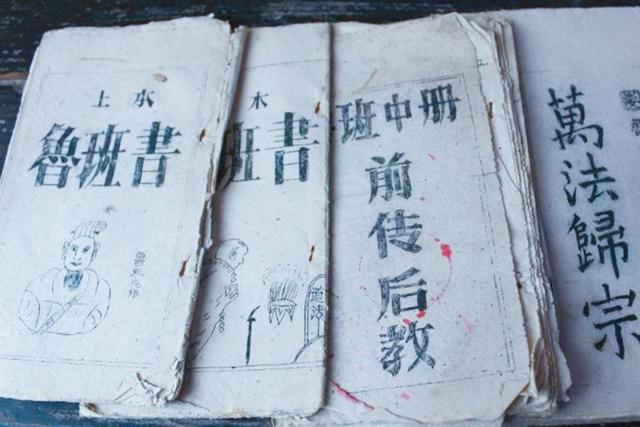 上水
魯班書
木
班書
道法
班中册
前传后教
萬法歸宗